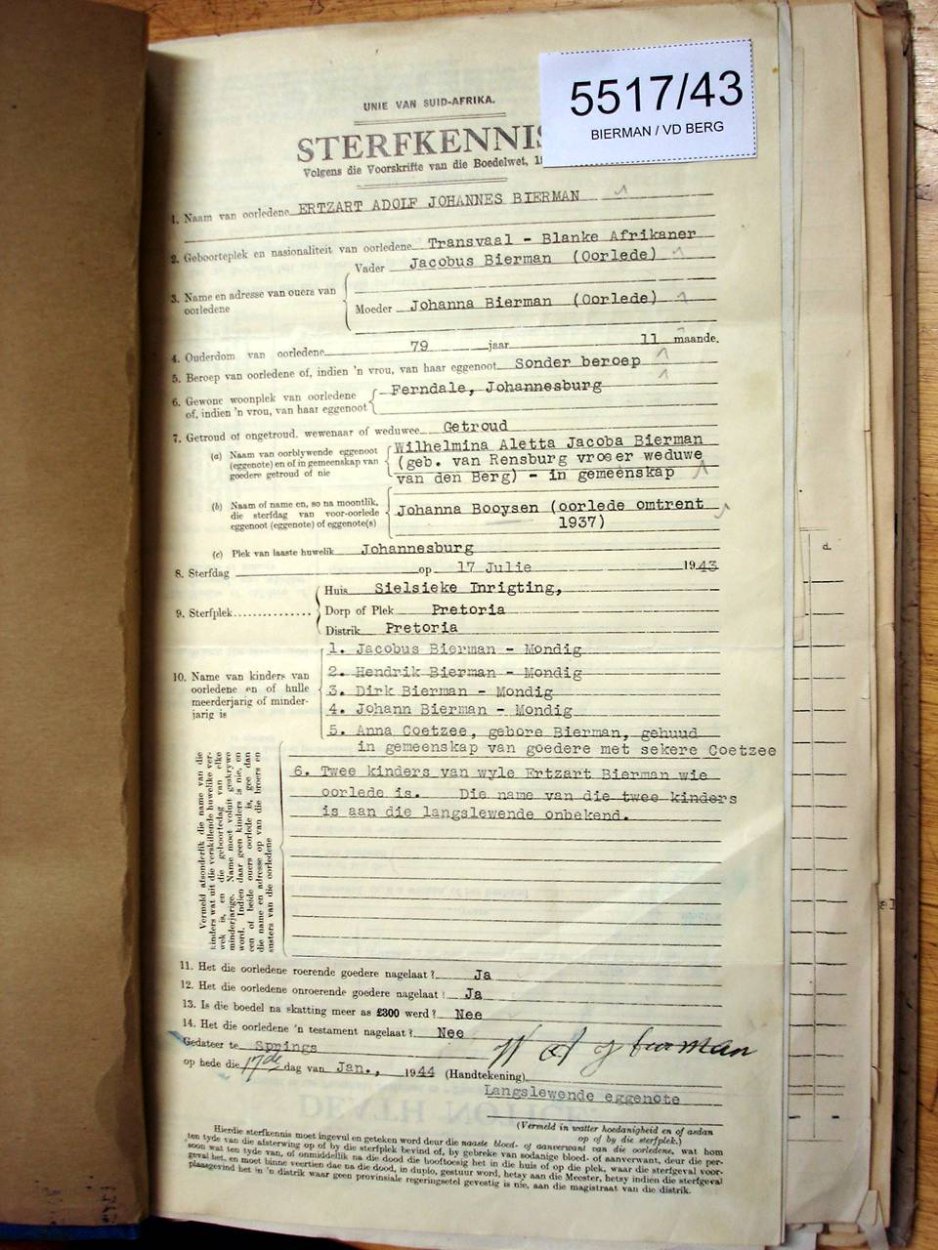 5517/43
BIERMAN / VD BERG
UNIE VAN SUID-AFRIKA.
STERFKENNIS
Volgens die Voorskrifte van die Boedelwet, 1
1. Naam van oorledene ERTZART ADOLF JOHANNES BIERMAN
2. Geboorteplek en nasionaliteit van oorledene Transvaal - Blanke Afrikaner
3. Name en adresse van ouers van oorledene
Vader Jacobus Bierman (Oorlede)
Moeder Johanna Bierman (Oorlede)
4. Ouderdom van oorledene 79 jaar 11 maande.
5. Beroep van oorledene of, indien 'n vrou, van haar eggenoot Sonder beroep
6. Gewone woonplek van oorledene Ferndale, Johannesburg
of, indien 'n vrou, van haar eggenoot
7. Getroud of ongetroud, wewenaar of weduwee Getroud
(a) Naam van oorblywende eggenoot Wilhelmina Aletta Jacoba Bierman
(eggenote) en of in gemeenskap van (geb. van Rensburg vroeer weduwe
goedere getroud of nie van den Berg) - in gemeenskap
(b) Naam of name en, so na moontlik,
die sterfdag van voor-oorlede Johanna Booysen (oorlede omtrent
eggenoot (eggenote) of eggenote(s) 1937)
(c) Plek van laaste huwelik Johannesburg
8. Sterfdag op 17 Julie 1943
9. Sterfplek
Huis Sielsieke Inrigting,
Dorp of Plek Pretoria
Distrik Pretoria
10. Name van kinders van
oorledene en of hulle
meerderjarig of minder-
jarig is
1. Jacobus Bierman - Mondig
2. Hendrik Bierman - Mondig
3. Dirk Bierman - Mondig
4. Johann Bierman - Mondig
5. Anna Coetzee, gebore Bierman, gehuud
in gemeenskap van goedere met sekere Coetzee
6. Twee kinders van wyle Ertzart Bierman wie
oorlede is. Die name van die twee kinders
is aan die langslewende onbekend.
Vermeld afsonderlik die name van die
kinders wat uit die verskillende huwelike ver-
wek is, en die geboortedag van elke
minderjarige. Name moet voluit geskrywe
word. Indien daar geen kinders is nie, en
een of beide ouers oorlede is, gee dan
die name en adresse op van die broers en
susters van die oorledene
11. Het die oorledene roerende goedere nagelaat? Ja
12. Het die oorledene onroerende goedere nagelaat? Ja
13. Is die boedel na skatting meer as £300 werd? Nee
14. Het die oorledene 'n testament nagelaat? Nee
Gedateer te Springs
op hede die 17de dag van Jan., 1944 (Handtekening) W A J Bierman
Langslewende eggenote
(Vermeld in watter hoedanigheid en of aedan
op of by die sterfplek.)
DEATH NOTICE
Hierdie sterfkennis moet ingevul en geteken word deur die naaste bloed- of aanverwant van die oorledene, wat hom
ten tyde van die afsterwing op of by die sterfplek bevind of, by gebreke van sodanige bloed- of aanverwant, deur die per-
soon wat ten tyde van, of onmiddellik na die dood die hooftoesig het in die huis of op die plek, waar die sterfgeval voor-
geval het, en moet binne veertien dae na die dood, in duplo, gestuur word, hetsy aan die Meester, hetsy indien die sterfgeval
plaasgevind het in 'n distrik waar geen provinsiale regeringsetel gevestig is nie, aan die magistraat van die distrik.
d.